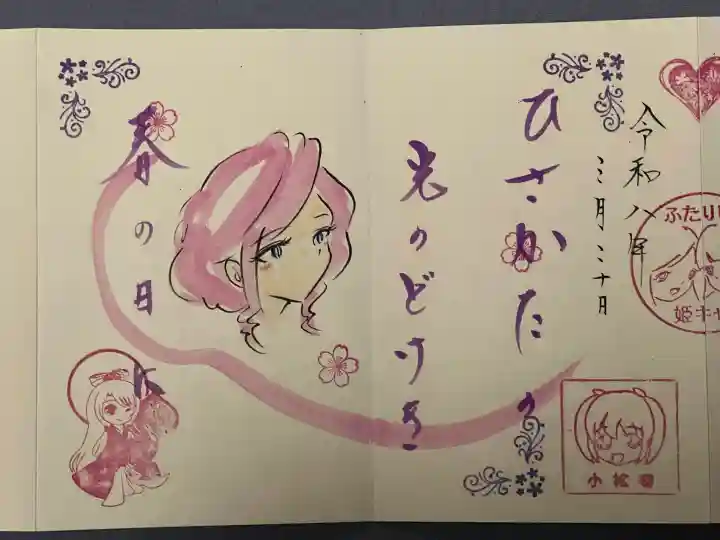 令和八年
三月三十日
ひさかたの
光のどけき
春の日に
ふたり
姫キャ
小松